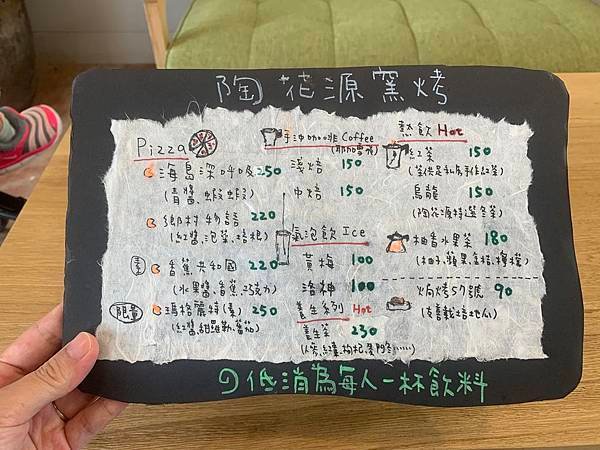 陶花源窯烤
Pizza
海島深呼吸 250
(青醬、蝦蝦蝦)
鄉村物語 220
(紅醬、泡菜、培根)
素 香蕉共和國 220
(水果醬、香蕉、巧克力)
限量 瑪格麗特(素) 250
(紅醬、甜羅勒、蕃茄)
手沖咖啡 Coffee
淺焙 150
中焙 150
氣泡飲 Ice
黃梅 100
洛神 100
養生系列 Hot
養生茶 230
(人蔘、紅棗、枸杞、麥門冬......)
熱飲 Hot
紅茶 150
烏龍 150
(陶花源特選冬茶)
柚香水果茶 180
(柚子、蘋果、金桔、檸檬)
火焗烤57號 90
(友善栽培地瓜)
低消為每人一杯飲料